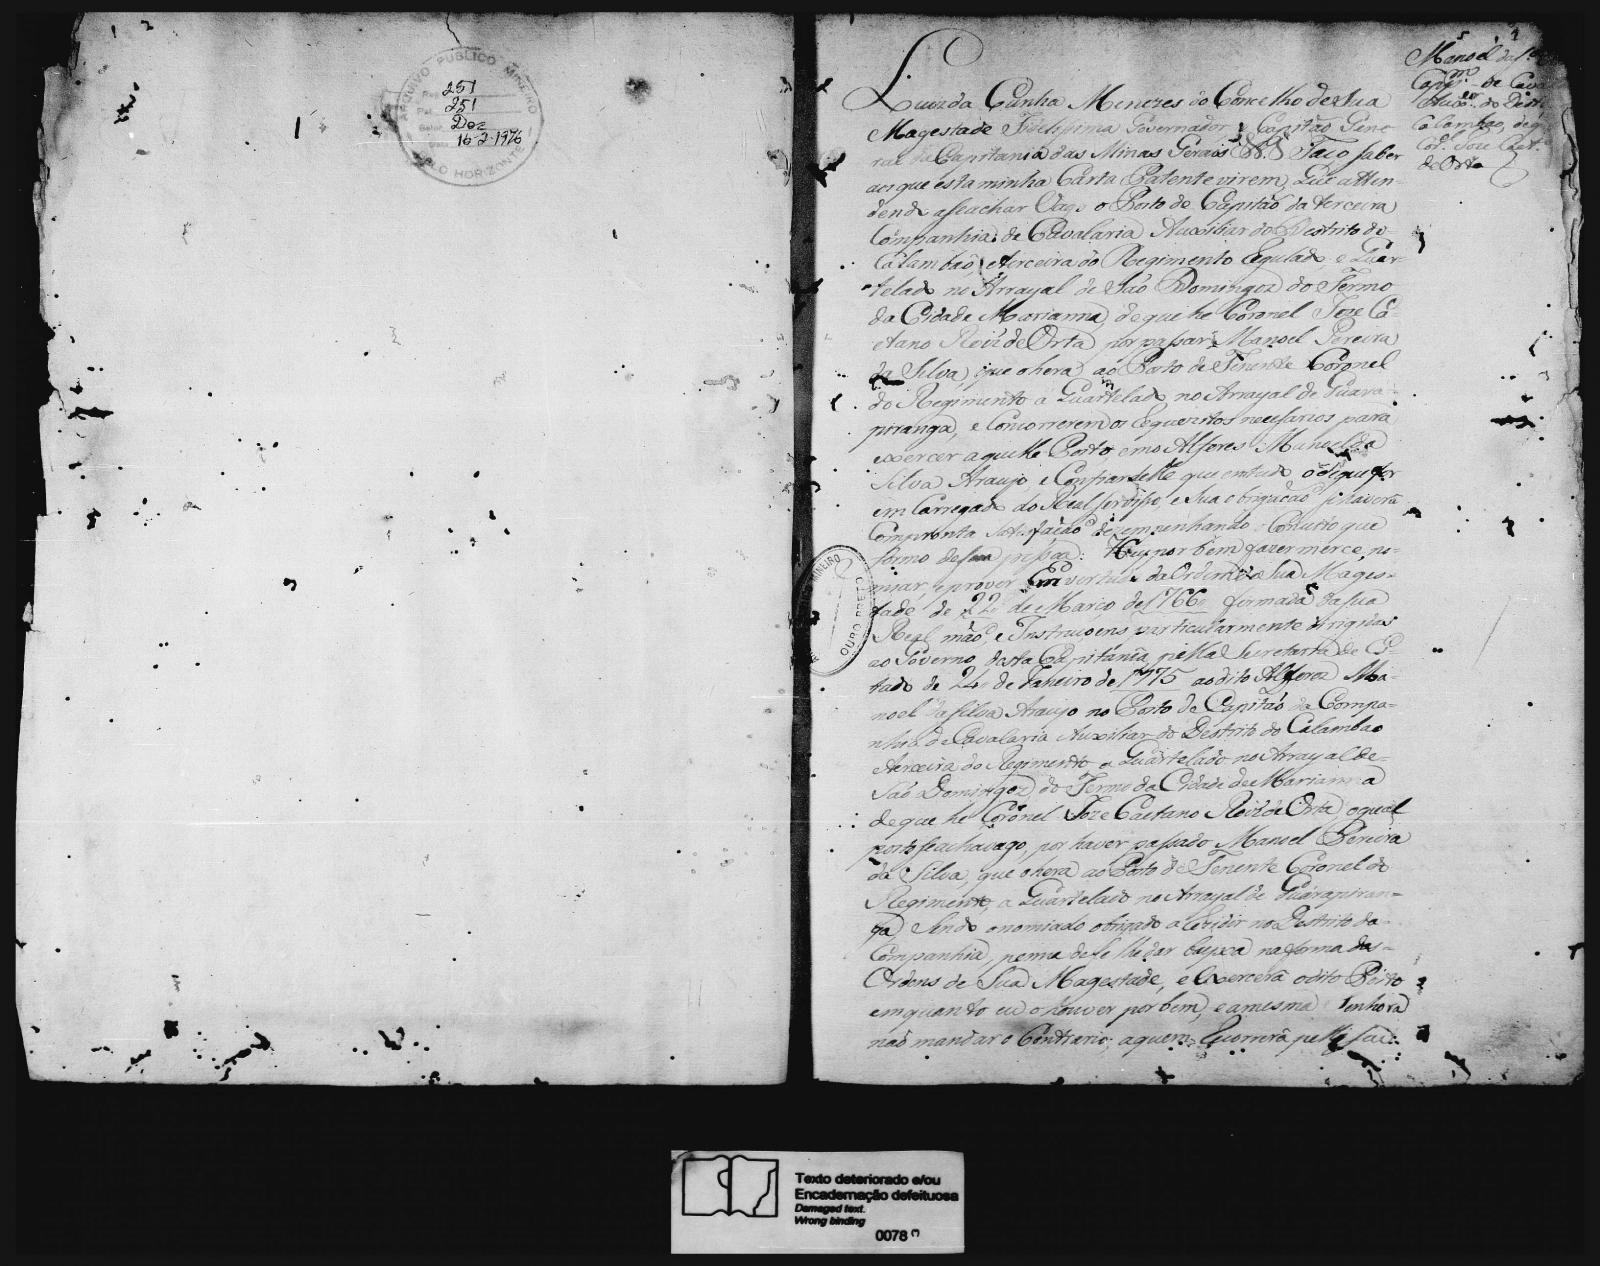 ARQUIVO PUBLICO MINEIRO
251
251
Dez
16-2-1976
BELO HORIZONTE
Manoel da S.ª
Cap.m de Cava
Aux.ar do Destr.
Calambao, de q̃
Cor.el Joze Caet.
de Orta
Luis da Cunha Menezes do Concelho de Sua
Magestade Fidelissima Governador e Capitaõ Gene
ral da Capitania das Minas Geraes &.ª Faço saber
aos que esta minha Carta Patente virem, que atten-
dendo a se achar Vago o Posto de Capitaõ da terceira
Companhia de Cavalaria Auxiliar do Destrito do
Calambaõ, e terceira do Regimento Regulado, e Quar-
telado no Arrayal de Saõ Domingos do Termo
da Cidade Marianna, de que he Coronel Joze Ca-
etano Roiz de Orta, por passar Manoel Pereira
da Silva, que o hera ao Posto de Tenente Coronel
do Regimento a Quartelado no Arrayal de Guara-
piranga, e Concorrerem os Requezitos necessarios para
exercer aquelle Posto em o Alferes Manoel da
Silva Araujo e Confiar delle que em tudo o de que for
em Carregado do Real serviço, e sua obrigaçaõ se haverá
Com pronta satisfaçaõ dezempenhando o Conceito que
formo de sua pessoa: Hey por bem fazer merce, no-
miar, e prover Em vertude da Ordem de Sua Mages-
tade de 22 de Março de 1766 firmada da sua
Real maõ, e Instruçoens particularmente dirigidas
ao Governo desta Capitania pella Secretaria de Es-
tado de 24 de Janeiro de 1775 ao dito Alferes Ma-
noel da Silva Araujo no Posto de Capitaõ da Compa-
nhia de Cavalaria Auxiliar do Destrito do Calambao
terceira do Regimento a Quartelado no Arrayal de
Saõ Domingos do Termo da Cidade de Marianna
de que he Coronel Joze Caetano Roiz de Orta, o qual
posto se achava vago, por haver passado Manoel Pereira
da Silva, que o hera ao Posto de Tenente Coronel do
Regimento, a Quartelado no Arrayal de Guarapiran-
ga, Sendo o nomiado obrigado a Rezidir no Destrito da
Companhia, penna de se lhe dar baixa na forma das
Ordens de Sua Magestade, e Exercerá o dito Posto
em quanto eu o houver por bem, e a mesma Senhora
naõ mandar o Contrario;
MINEIRO
OURO PRETO
Texto deteriorado e/ou
Encadernação defeituosa
Damaged text.
Wrong binding
0078